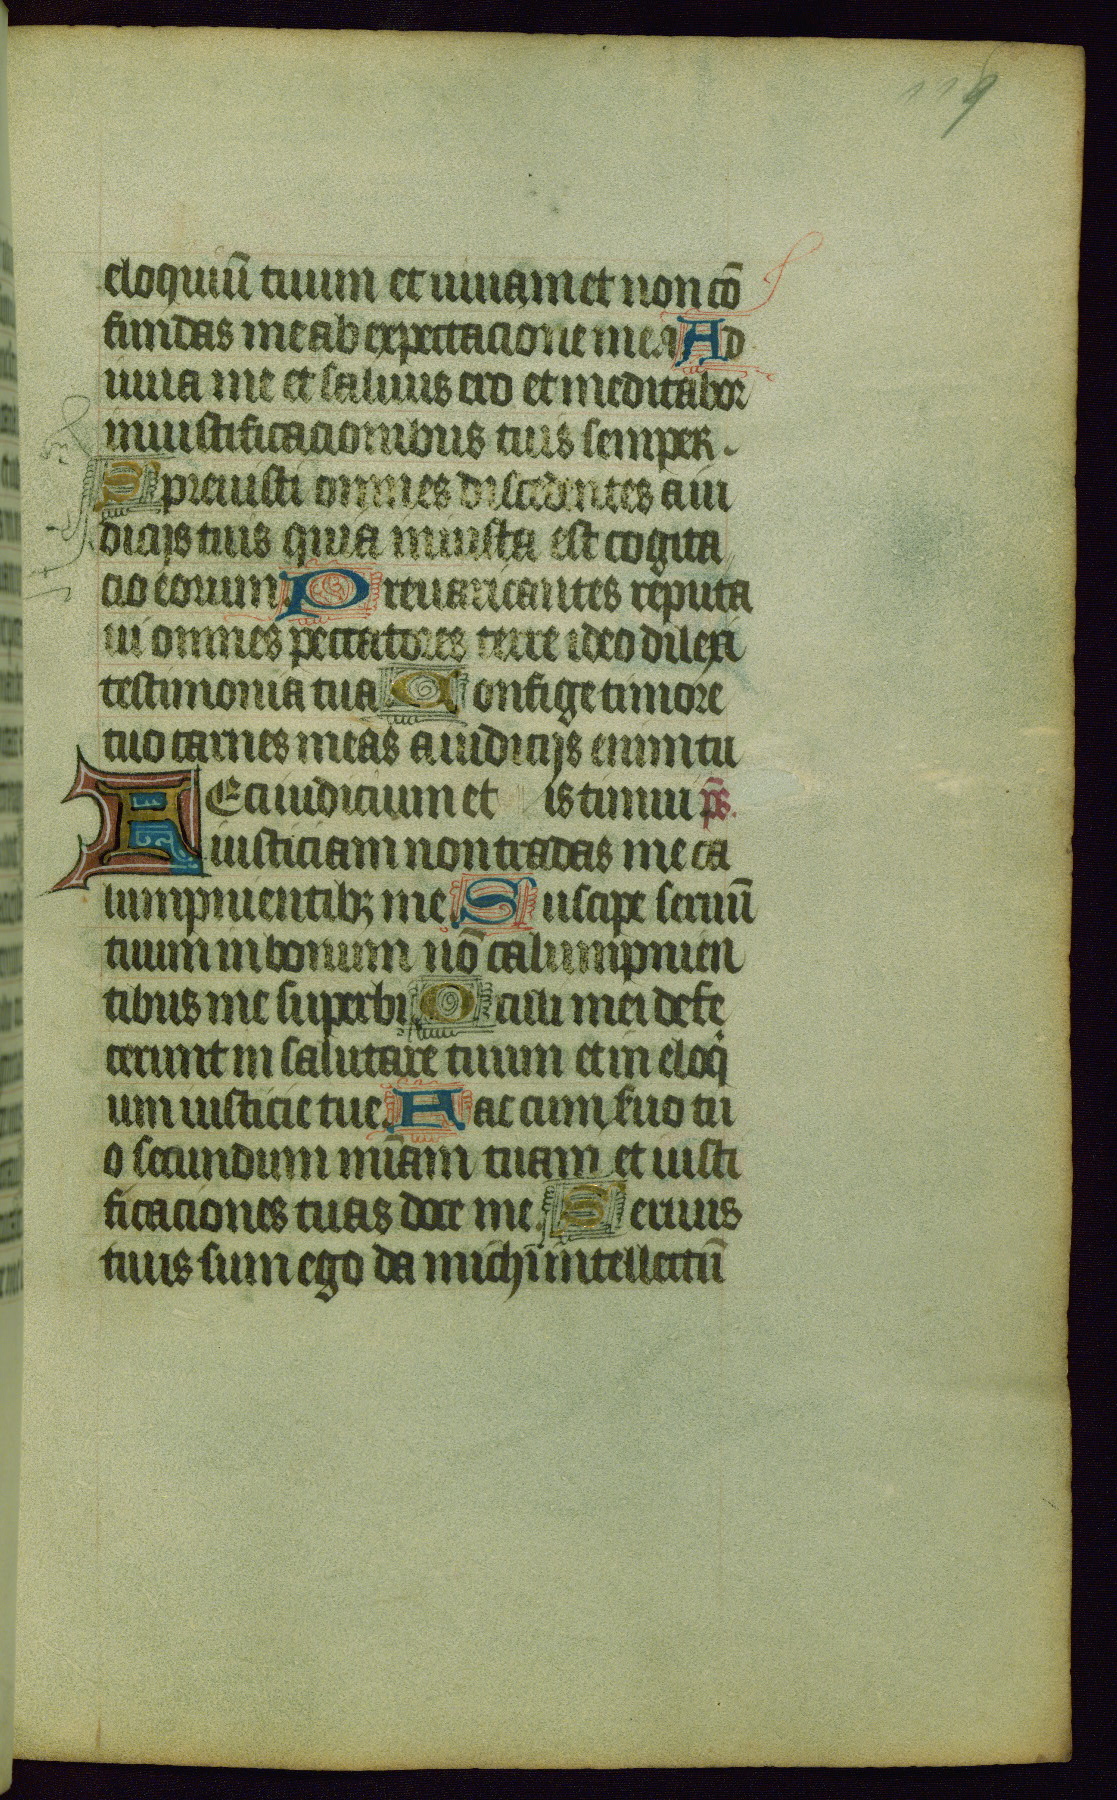 119
eloquiū tuum et uiuam et non cō
fundas me ab expectacione mea Ad
iuua me et saluus ero et meditabor
in iustificacionibus tuis semper.
Spreuisti omnes discedentes a iu
dicijs tuis quia iniusta est cogita
cio eorum Preuaricantes reputa
ui omnes peccatores terre ideo dilexi
testimonia tua Confige timore
tuo carnes meas a iudicijs enim tu
is timui p̄s.
FEci iudicium et
iusticiam non tradas me ca
lumpnientibꝫ me Suscipe seruū
tuum in bonum nō calumpnien
tibus me superbi Oculi mei defe
cerunt in salutare tuum et in eloq
um iusticie tue Fac cum seruo tu
o secundum mīam tuam et iusti
ficaciones tuas doce me. Seruus
tuus sum ego da michi intellectū